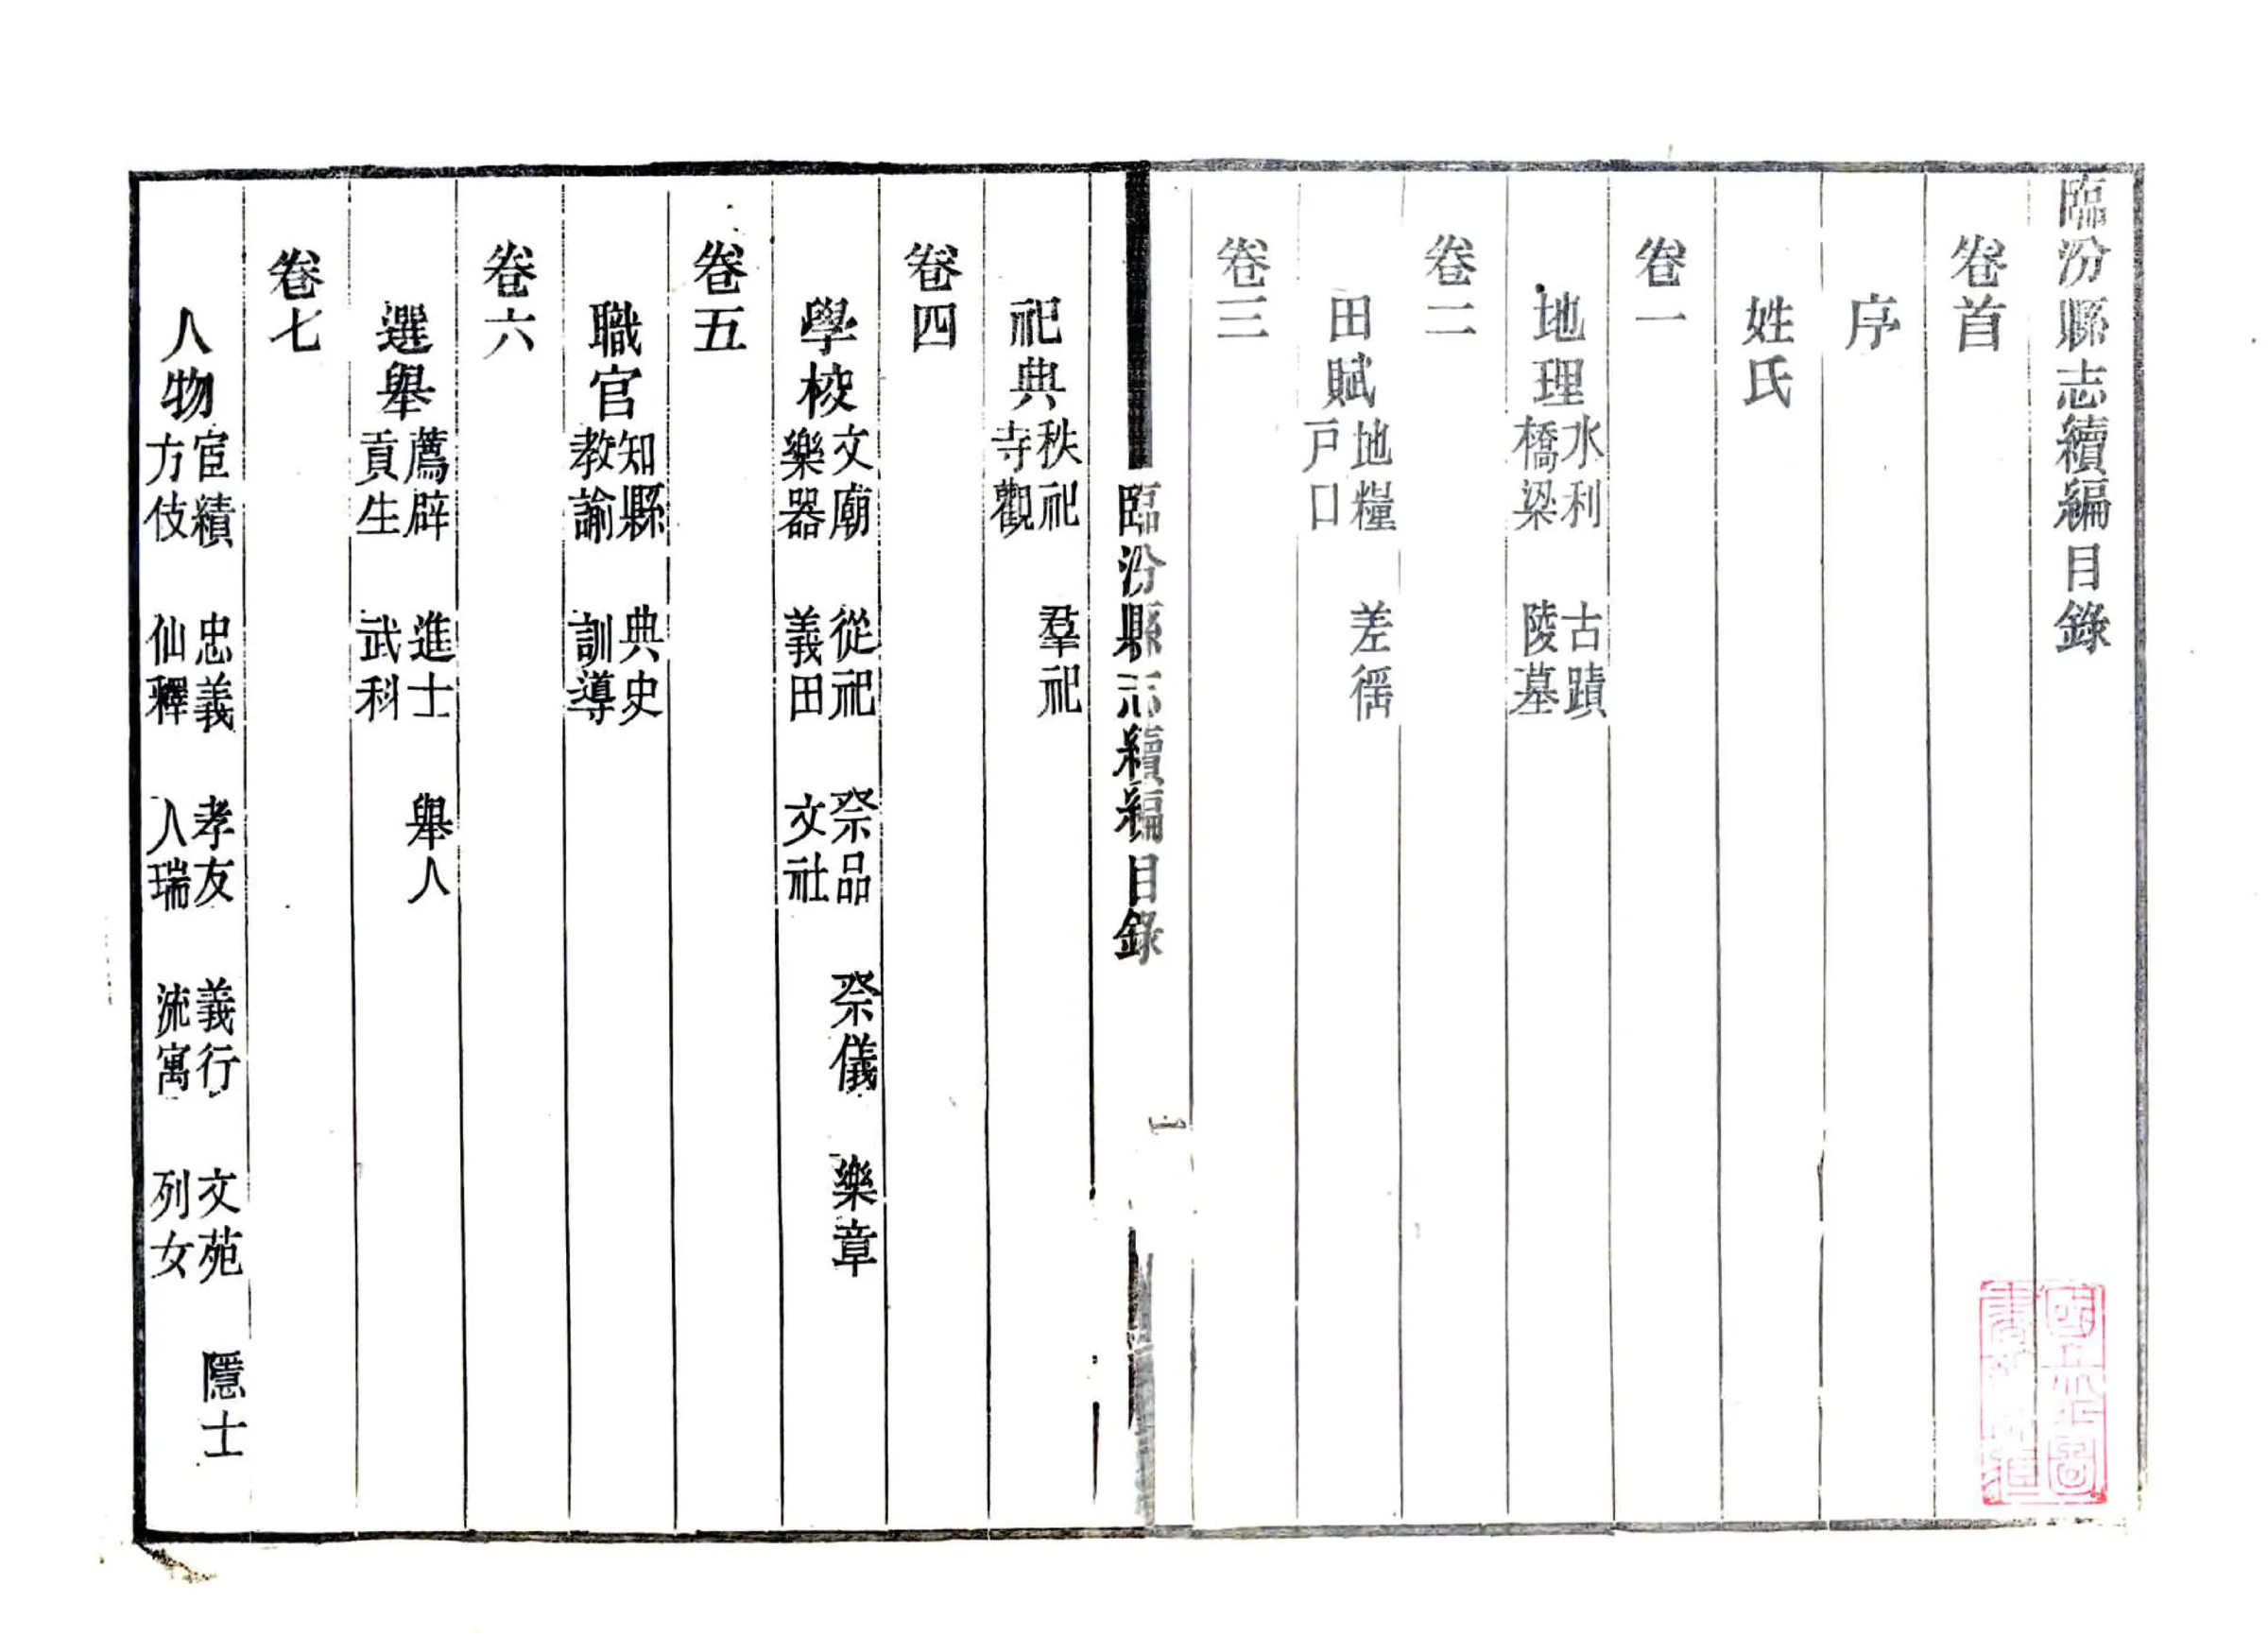 臨汾縣志續編目錄
卷首
序
姓氏
卷一
地理 水利 古蹟
橋梁 陵墓
卷二
田賦 地糧 差徭
戶口
卷三
臨汾縣志續編目錄
一
祀典 秩祀 羣祀
寺觀
卷四
學校 文廟 從祀 祭品 祭儀 樂章
樂器 義田 文社
卷五
職官 知縣 典史
教諭 訓導
卷六
選舉 薦辟 進士 舉人
貢生 武科
卷七
人物 宦績 忠義 孝友 義行 文苑 隱士
方伎 仙釋 人瑞 流寓 列女